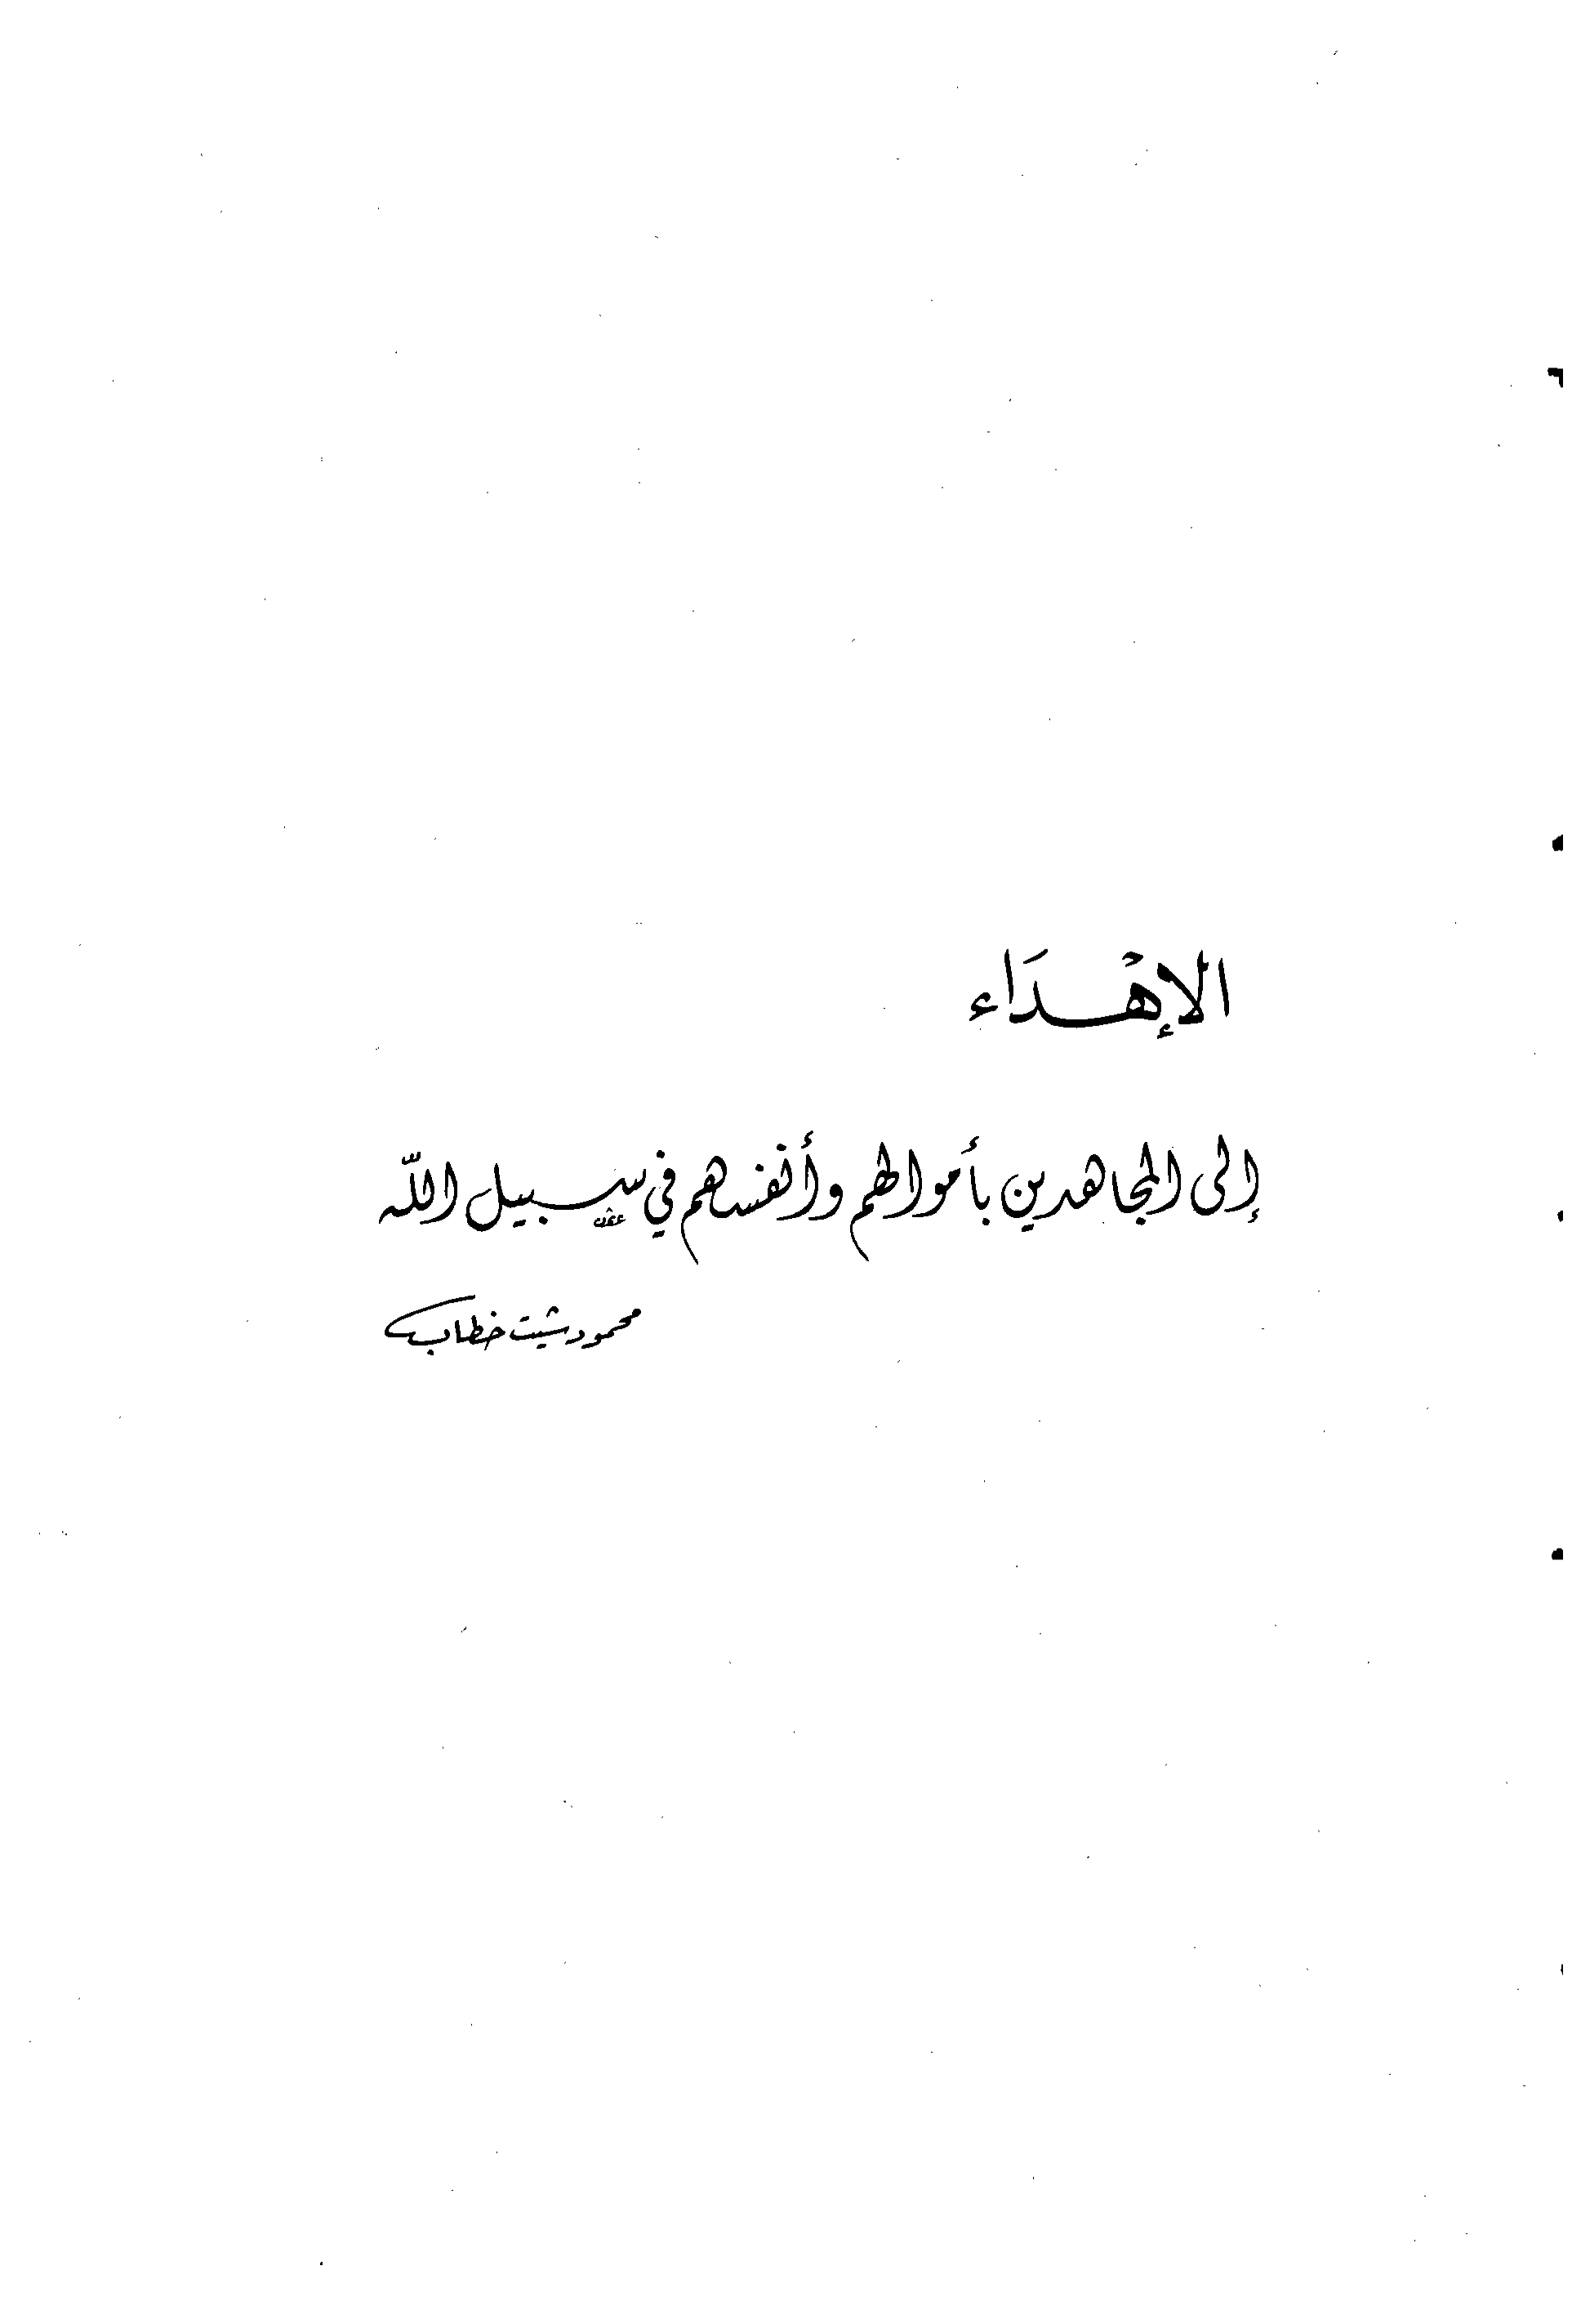 الإهْدَاء
إلى المجاهدين بأموالهم وأنفسهم في سبيل اللّه
محمود شيت خطاب